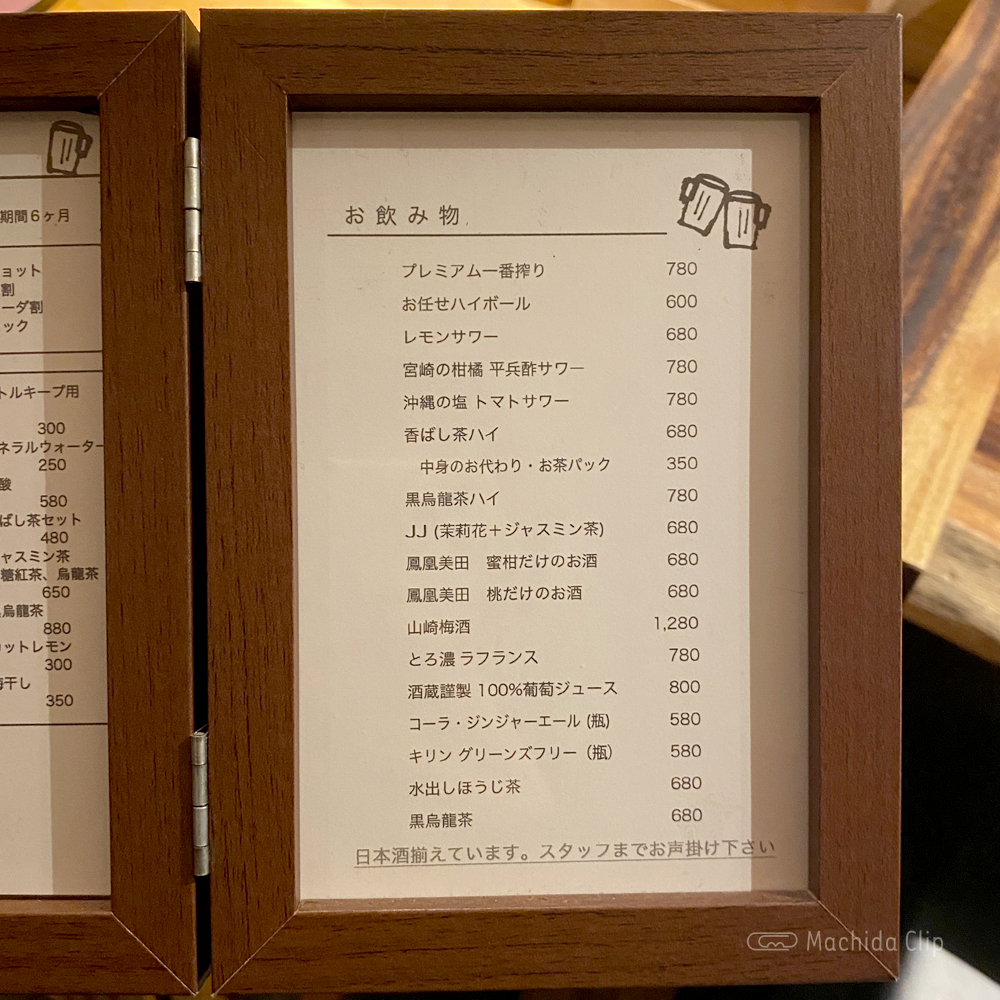 期間6ヶ月
ョット
割
ーダ割
ック
トルキープ用
300
ネラルウォーター
250
酸
580
ばし茶セット
480
ャスミン茶
糖紅茶、烏龍茶
650
烏龍茶
880
ットレモン
300
梅干し
350
お飲み物
プレミアム一番搾り 780
お任せハイボール 600
レモンサワー 680
宮崎の柑橘 平兵酢サワー 780
沖縄の塩 トマトサワー 780
香ばし茶ハイ 680
中身のお代わり・お茶パック 350
黒烏龍茶ハイ 780
JJ (茉莉花＋ジャスミン茶) 680
鳳凰美田 蜜柑だけのお酒 680
鳳凰美田 桃だけのお酒 680
山崎梅酒 1,280
とろ濃 ラフランス 780
酒蔵謹製 100%葡萄ジュース 800
コーラ・ジンジャーエール (瓶) 580
キリン グリーンズフリー（瓶） 580
水出しほうじ茶 680
黒烏龍茶 680
日本酒揃えています。スタッフまでお声掛け下さい
Machida Clip